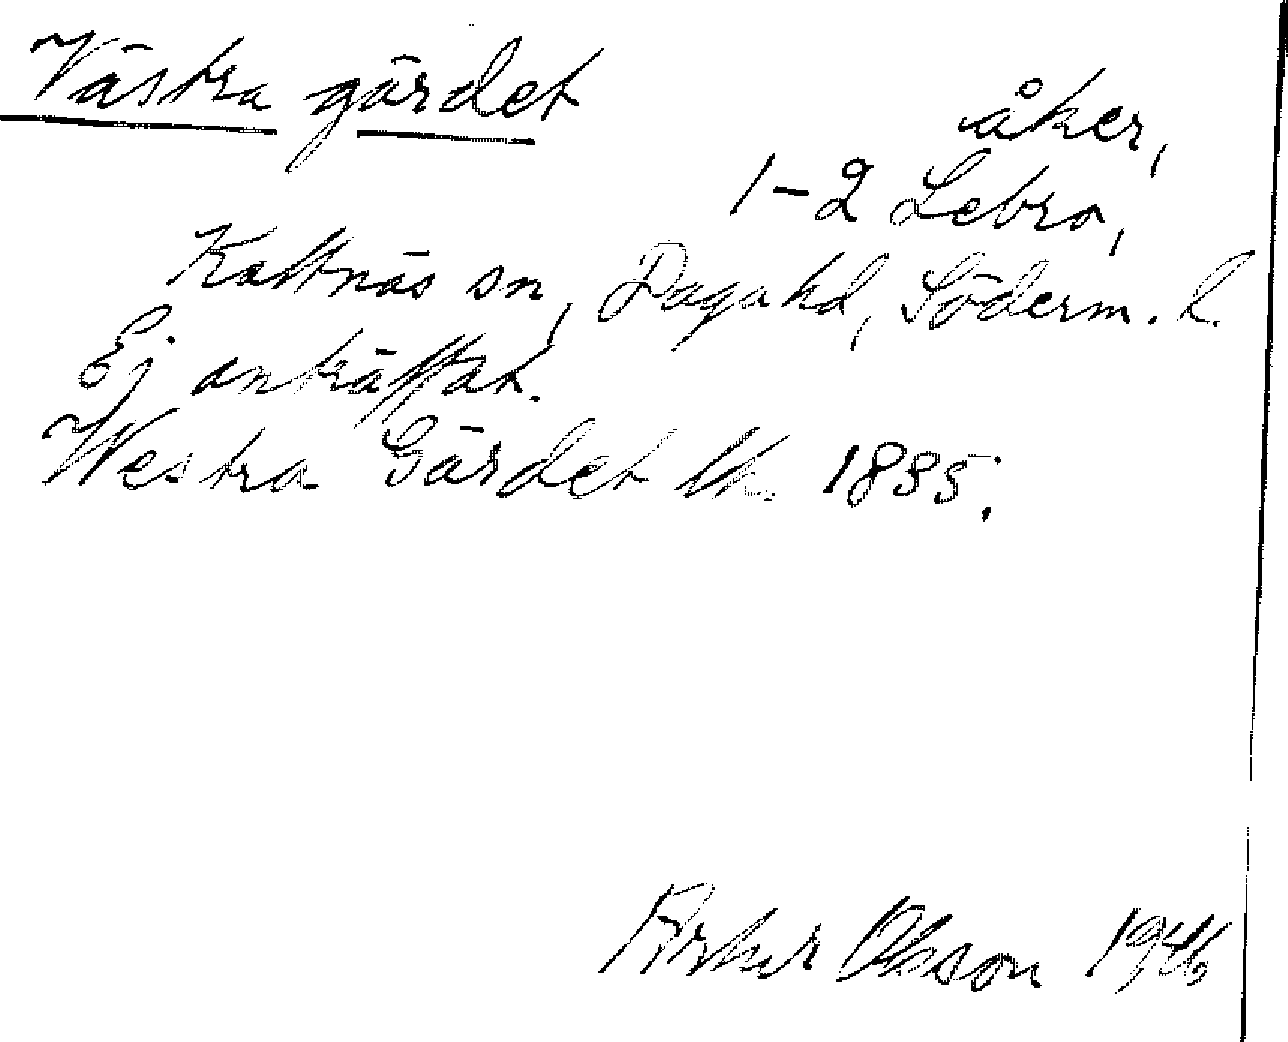 Västra gärdet
åker,
1-2 Lebro,
Kattnäs sn, Daga hd, Söderm. l.
Ej anträffat.
Westra Gärdet lk. 1885.
Olsson 1946